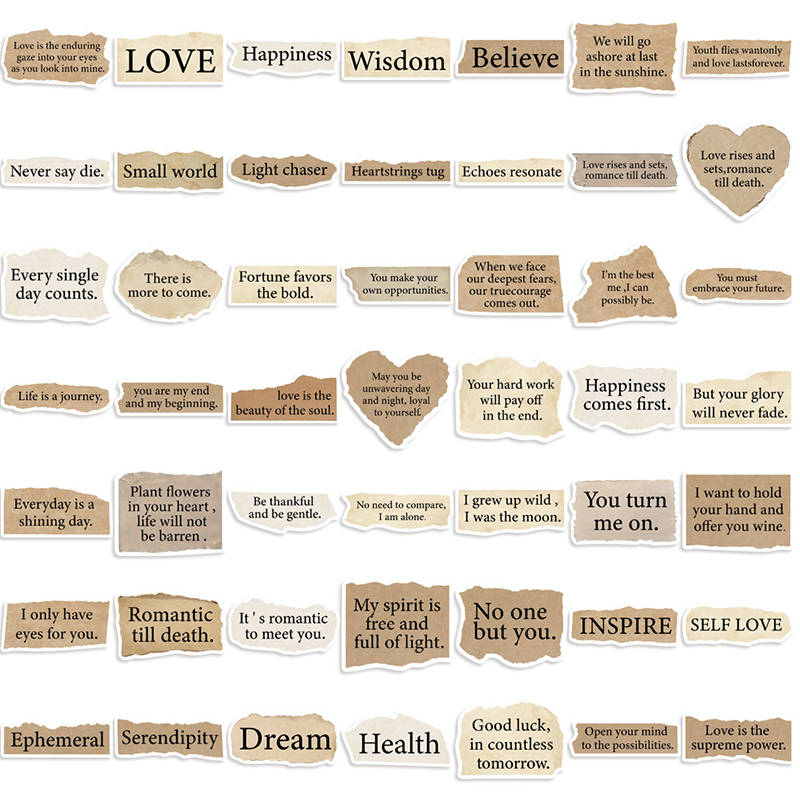 Love is the enduring
gaze into your eyes
as you look into mine.
LOVE
Happiness
Wisdom
Believe
We will go
ashore at last
in the sunshine.
Youth flies wantonly
and love lastsforever.
Never say die.
Small world
Light chaser
Heartstrings tug
Echoes resonate
Love rises and sets,
romance till death.
Love rises and
sets,romance
till death.
Every single
day counts.
There is
more to come.
Fortune favors
the bold.
You make your
own opportunities.
When we face
our deepest fears,
our truecourage
comes out.
I'm the best
me ,I can
possibly be.
You must
embrace your future.
Life is a journey.
you are my end
and my beginning.
love is the
beauty of the soul.
May you be
unwavering day
and night, loyal
to yourself.
Your hard work
will pay off
in the end.
Happiness
comes first.
But your glory
will never fade.
Everyday is a
shining day.
Plant flowers
in your heart ,
life will not
be barren .
Be thankful
and be gentle.
No need to compare,
I am alone.
I grew up wild ,
I was the moon.
You turn
me on.
I want to hold
your hand and
offer you wine.
I only have
eyes for you.
Romantic
till death.
It ' s romantic
to meet you.
My spirit is
free and
full of light.
No one
but you.
INSPIRE
SELF LOVE
Ephemeral
Serendipity
Dream
Health
Good luck,
in countless
tomorrow.
Open your mind
to the possibilities.
Love is the
supreme power.